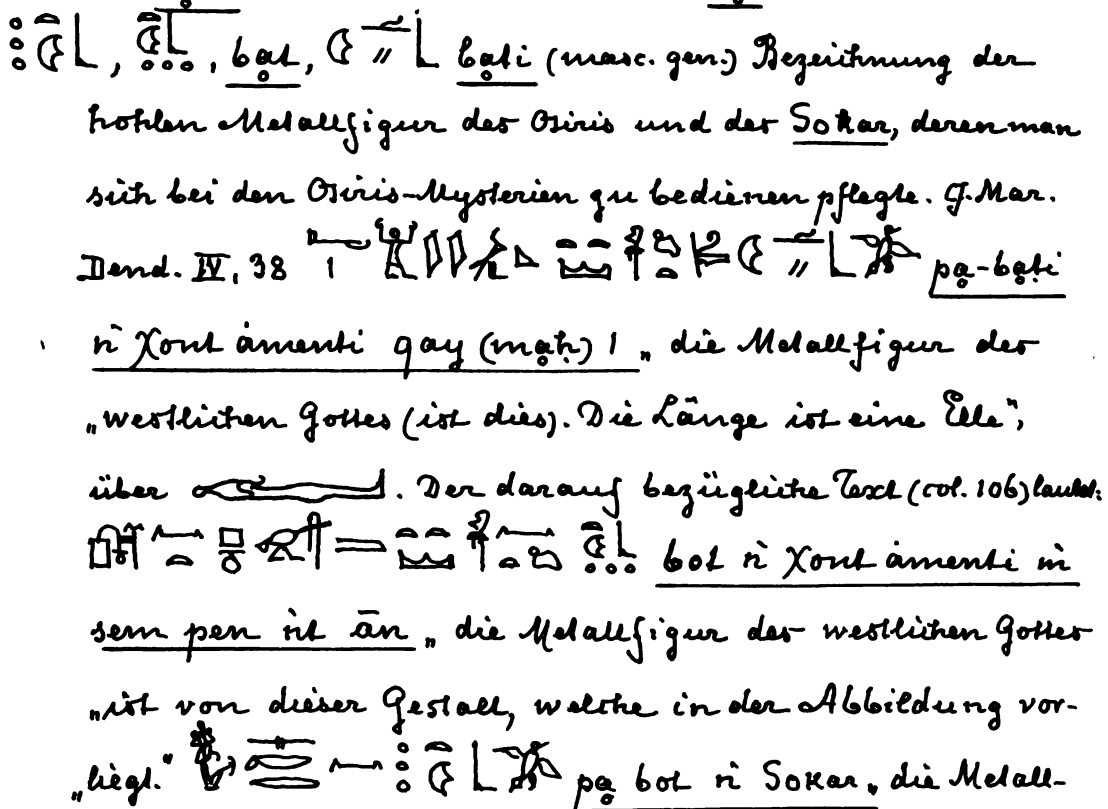 , baͦt, baͦti (masc. gen.) Bezeichnung der
hohlen Metallfigur des Osiris und des Sokar, deren man
sich bei den Osiris-Mysterien zu bedienen pflegte. Cf. Mar.
Dend. IV, 38 paͦ-baͦti
ṅ χont ȧmenti qay (maͦḥ) 1 „die Metallfigur des
„westlichen Gottes (ist dies). Die Länge ist eine Elle",
über . Der darauf bezügliche Text (col. 106) lautet:
bot ṅ χont ȧmenti m
sem pen nt ān „die Metallfigur des westlichen Gottes
„ist von dieser Gestalt, welche in der Abbildung vor-
„liegt." paͦ bot ṅ Sokar „die Metall-